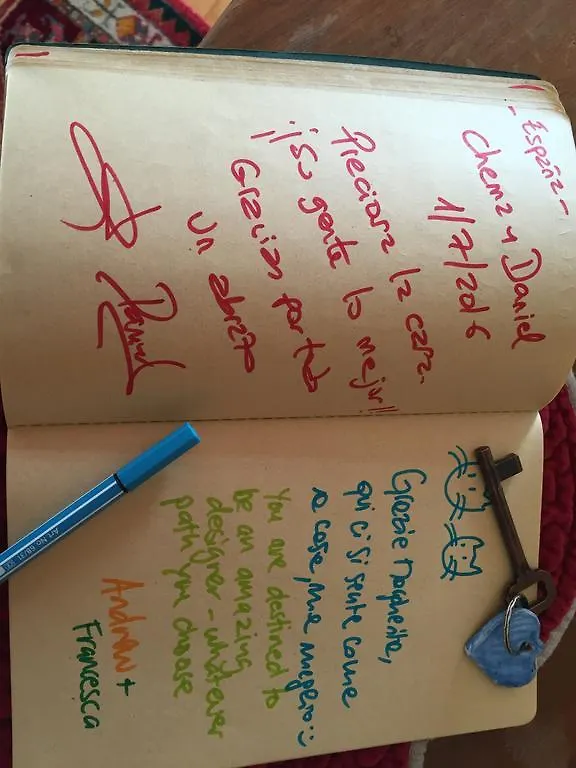 - España -
Chema y Daniel
1/7/2016
Preciosa la casa.
¡¡Su gente lo mejor!!
Gracias por todo
Un abrazo
Daniel
Grazie Margherita,
qui ci si sente come
a casa, ma meglio :)
You are destined to
be an amazing
designer - whatever
path you choose
Andrew +
Francesca
Art. No. 68/31